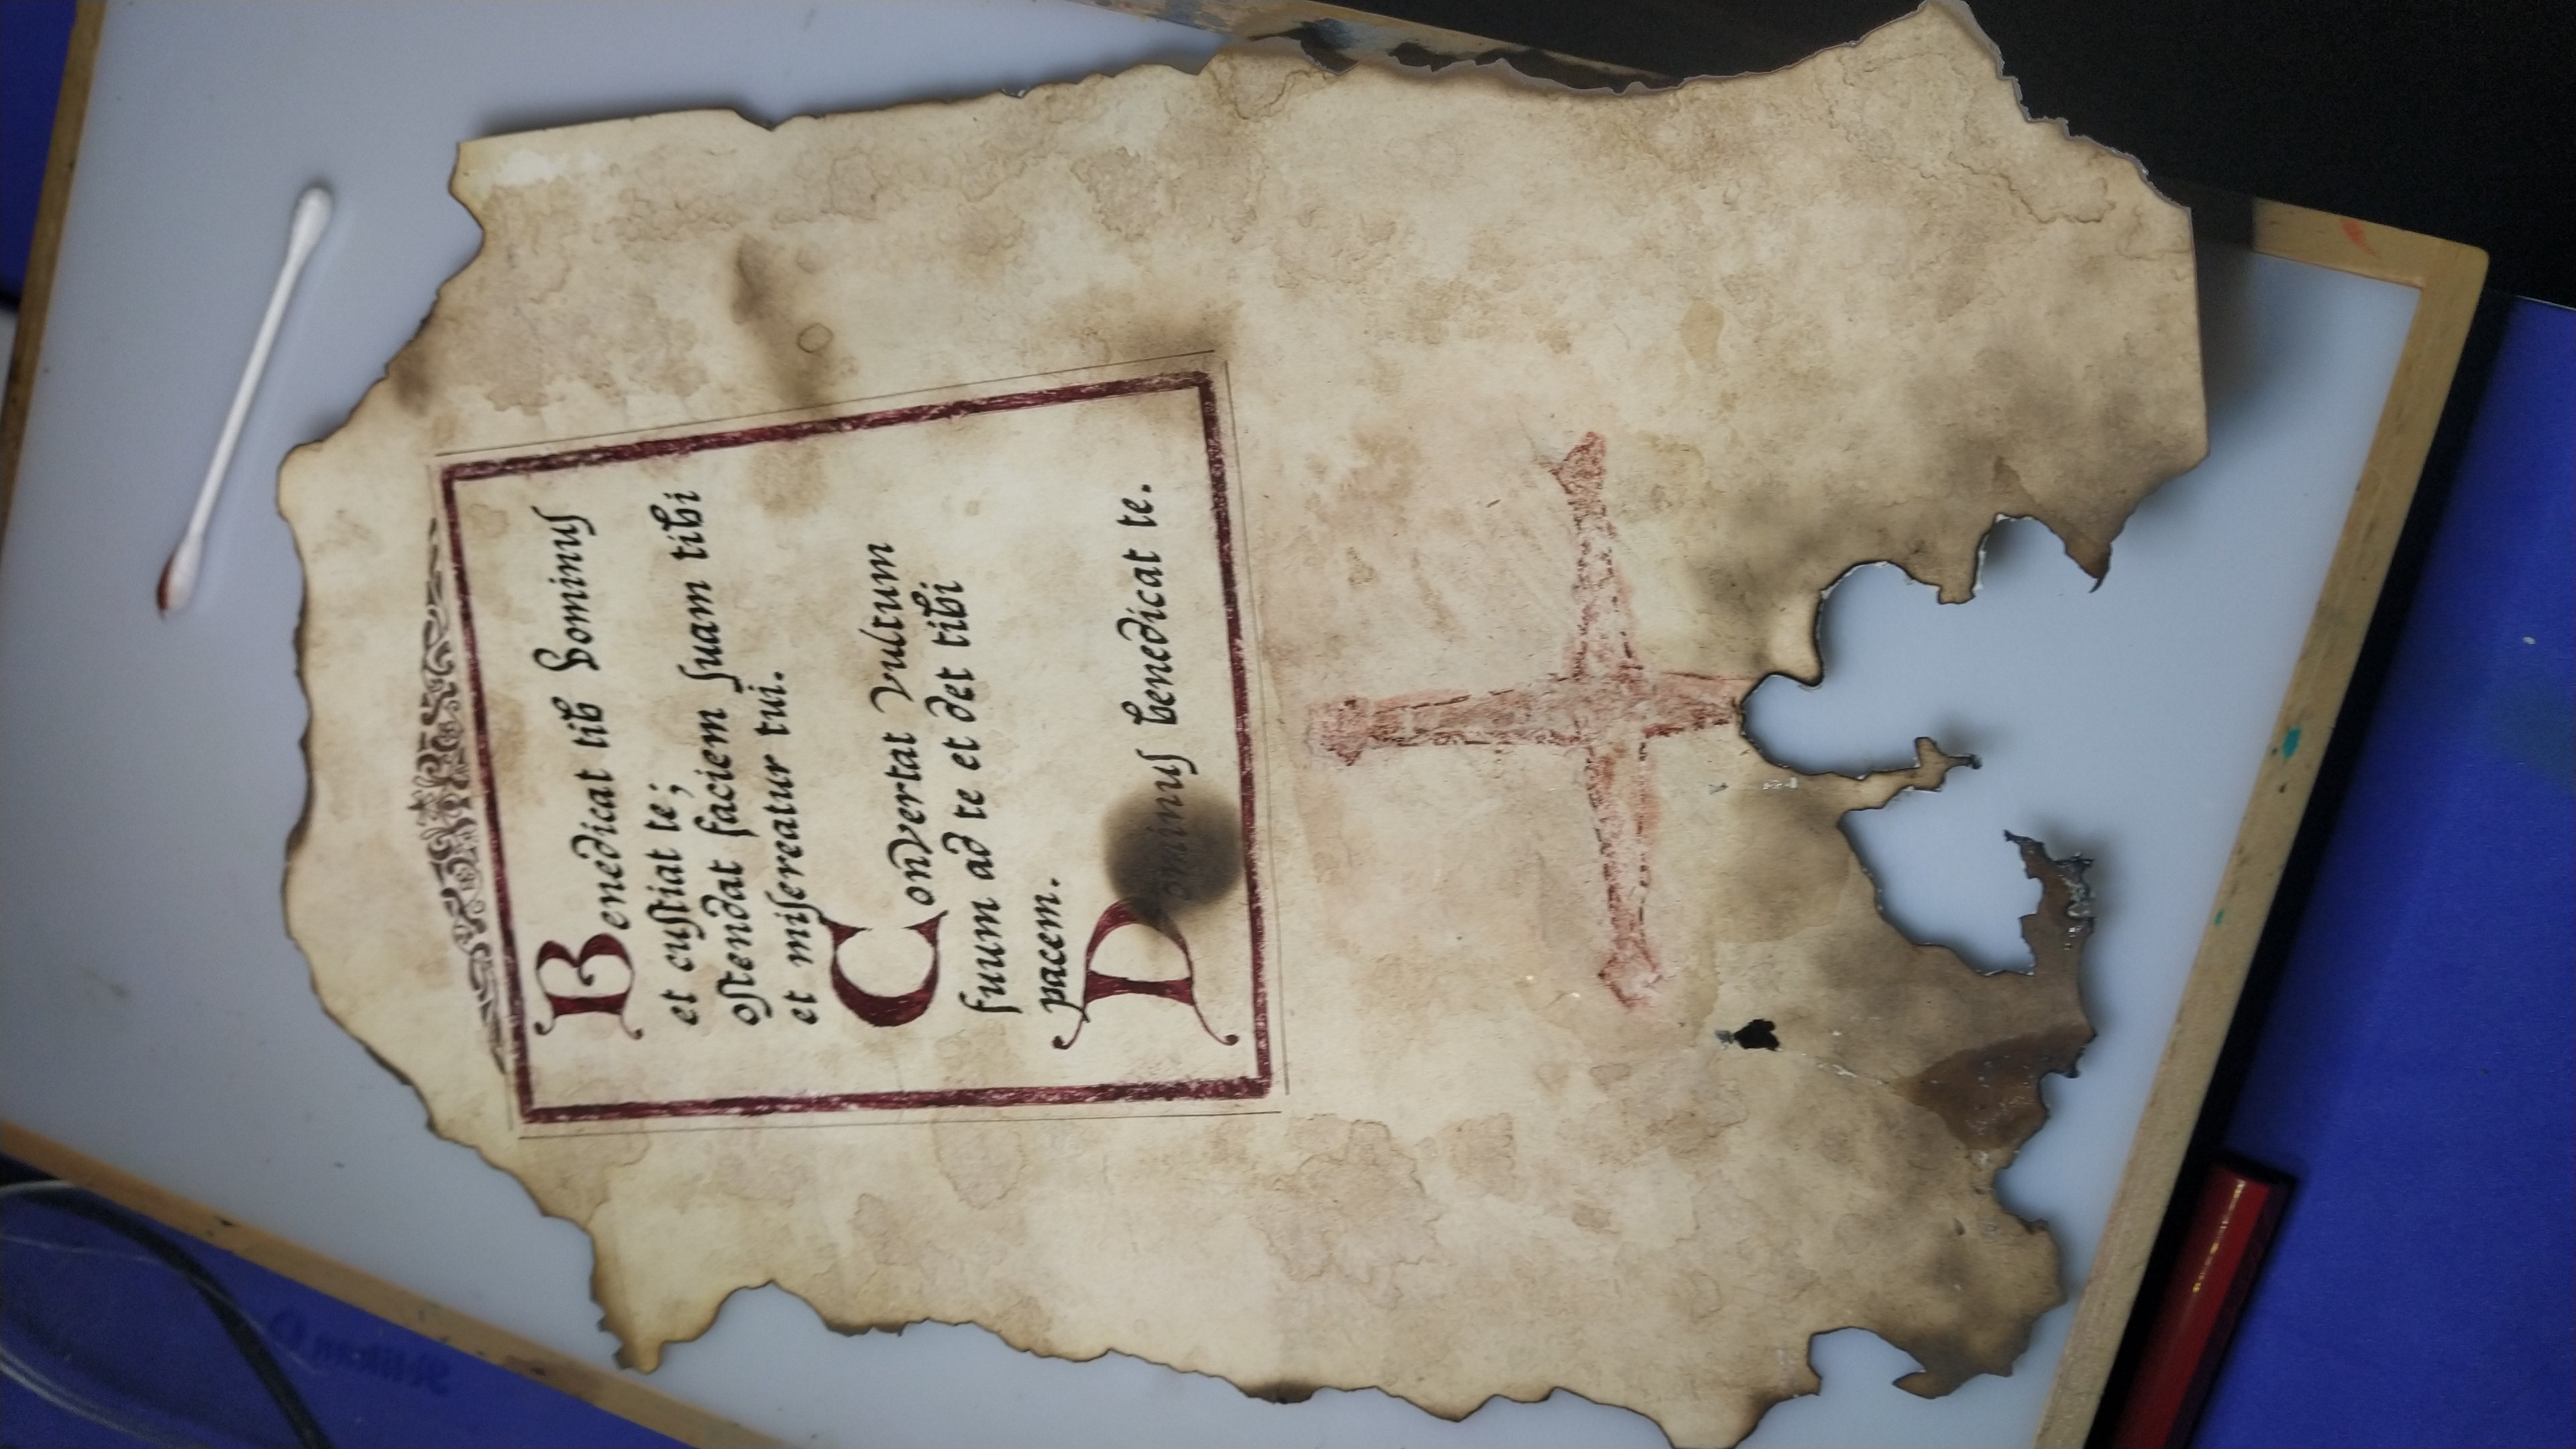 Benedicat tib Dominus
et custiat te;
ostendat faciem suam tibi
et misereatur tui.
Convertat vultum
suum ad te et det tibi
pacem.
Dominus benedicat te.
Pelikan